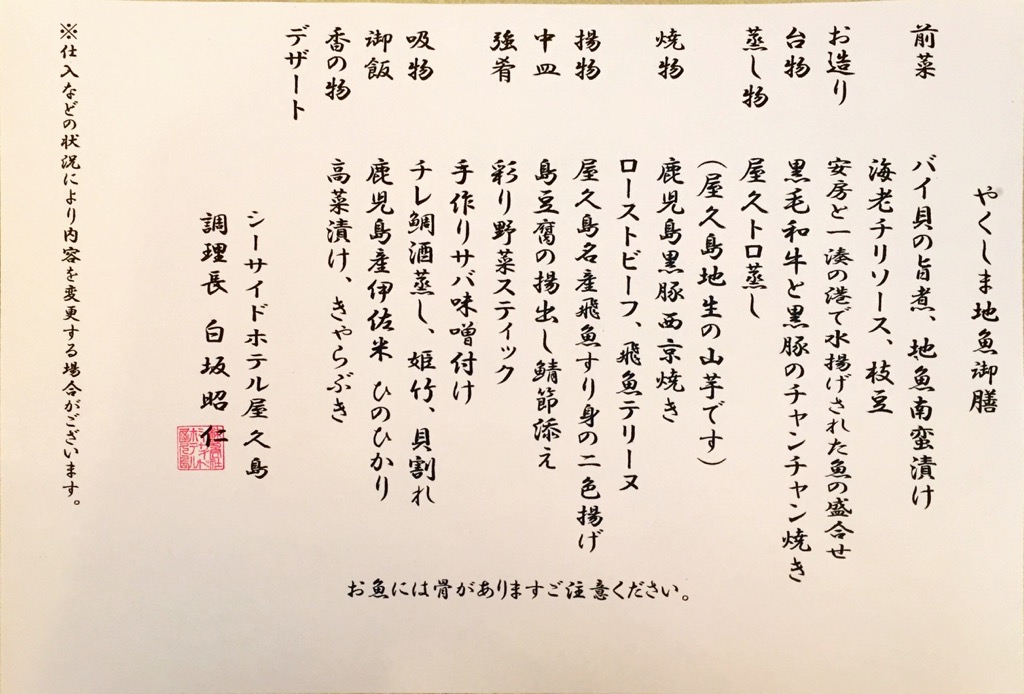 やくしま地魚御膳
前菜　バイ貝の旨煮、地魚南蛮漬け
海老チリソース、枝豆
お造り　安房と一湊の港で水揚げされた魚の盛合せ
台物　黒毛和牛と黒豚のチャンチャン焼き
蒸し物　屋久トロ蒸し
(屋久島地生の山芋です)
焼物　鹿児島黒豚西京焼き
ローストビーフ、飛魚テリーヌ
揚物　屋久島名産飛魚すり身の二色揚げ
中皿　島豆腐の揚出し鯖節添え
強肴　彩り野菜スティック
手作りサバ味噌付け
吸物　チレ鯛酒蒸し、姫竹、貝割れ
御飯　鹿児島産伊佐米 ひのひかり
香の物　高菜漬け、きゃらぶき
デザート
シーサイドホテル屋久島
調理長 白坂昭仁
※仕入などの状況により内容を変更する場合がございます。
お魚には骨がありますご注意ください。